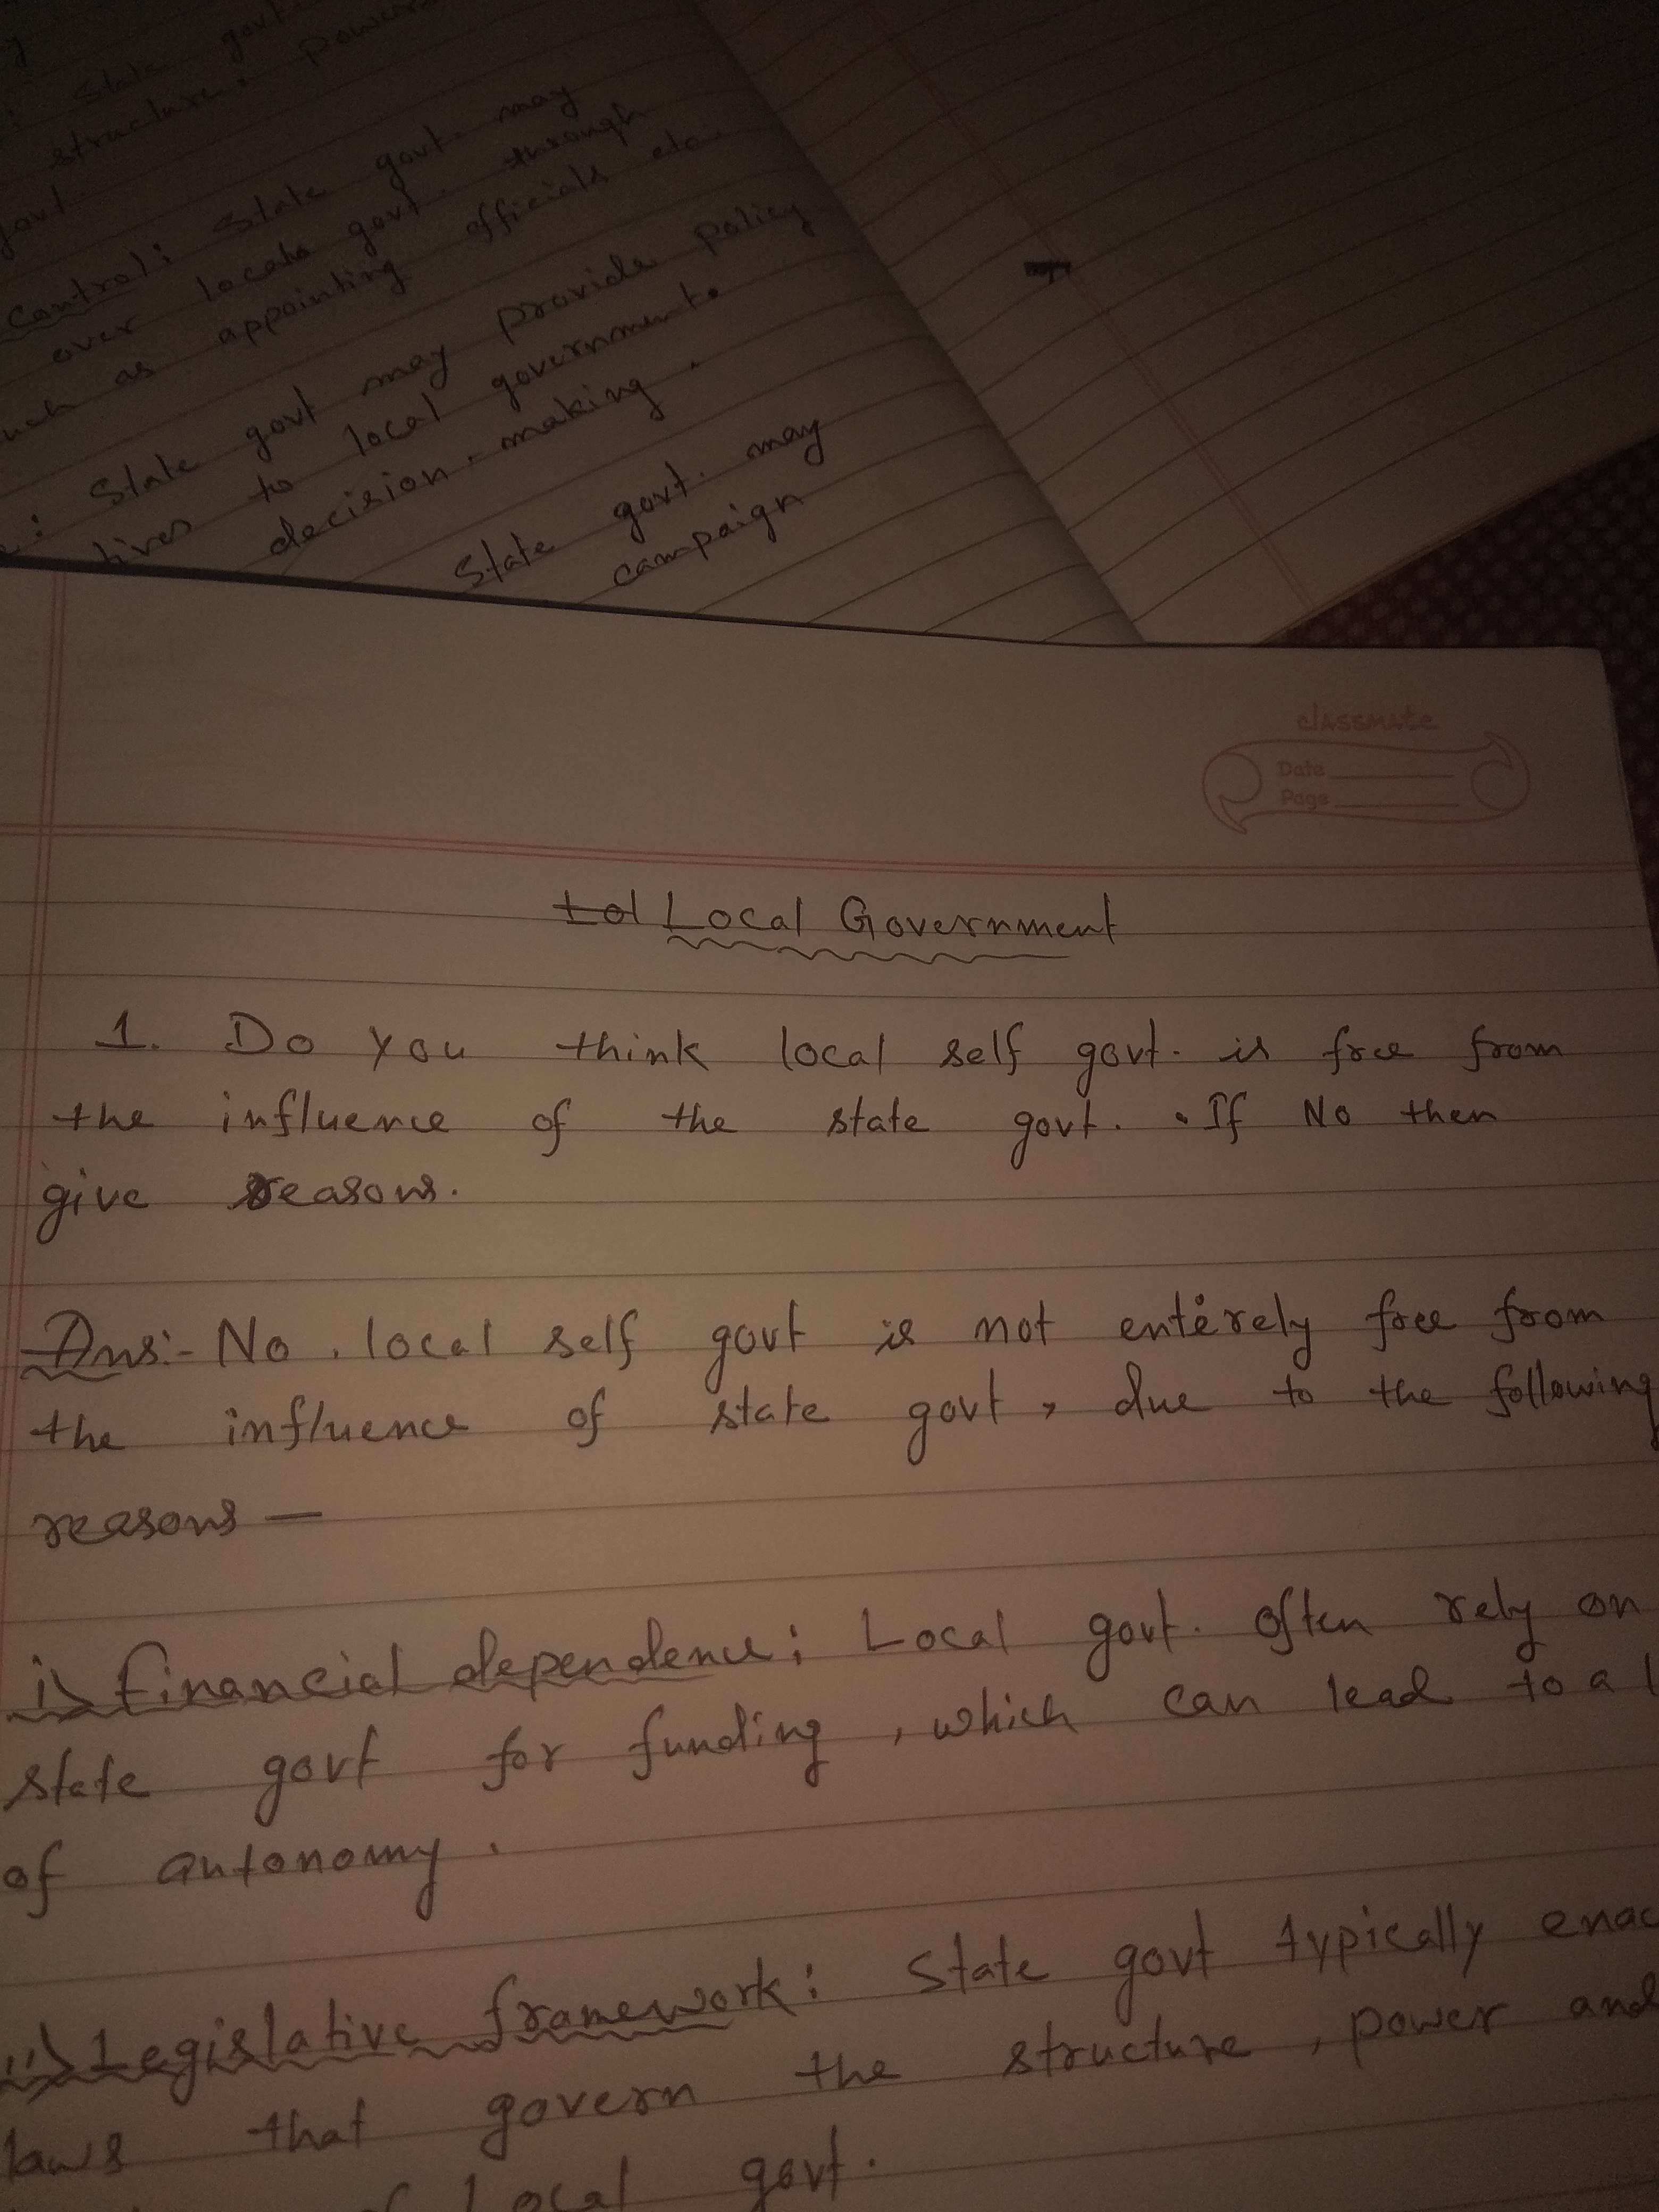 State govt.
structure, powers
govt.
Control: State govt. may
over locals govt. through
as appointing officials etc.
: State govt may provide policy
to local governments
decision-making.
State govt. may
campaign
classmate
Date
Page
Lol Local Government
1. Do you think local self govt. is free from
the influence of the state govt. . If No then
give reasons.
Ans:- No, local self govt is not entirely free from
the influence of state govt, due to the following
reasons —
i> Financial dependence: Local govt. often rely on
state govt for funding, which can lead to a
of autonomy.
ii> Legislative framework: State govt typically
laws that govern the structure, power and
of Local govt.